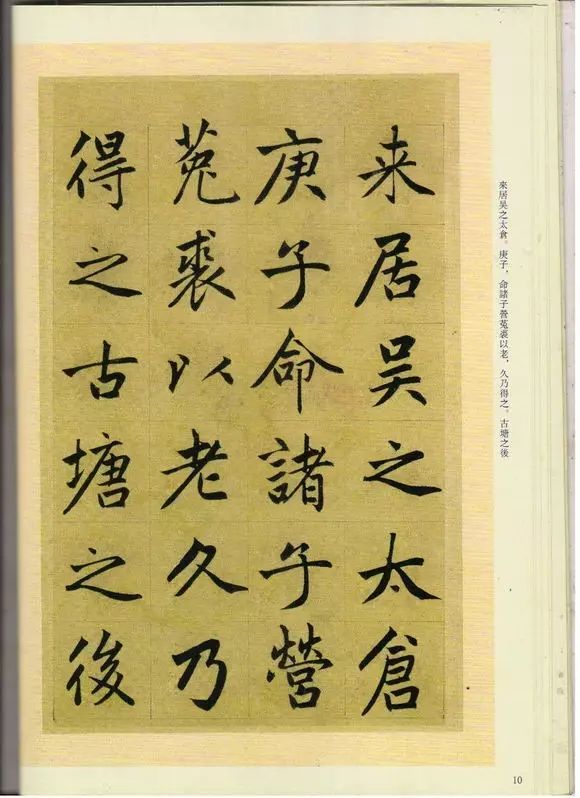 来居吴之太倉
庚子命諸子營
菟裘以老久乃
得之古塘之後
來居吴之太倉。庚子，命諸子營菟裘以老，久乃得之。古塘之後
10